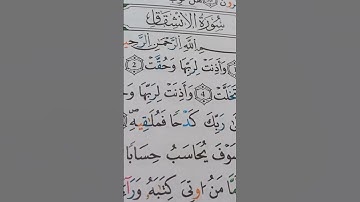 سُورَةُ الْاِنْشِقَاقِ
بِسْمِ اللّٰهِ الرَّحْمٰنِ الرَّحِيْمِ
وَاَذِنَتْ لِرَبِّهَا وَحُقَّتْ ②
تَخَلَّتْ ④ وَاَذِنَتْ لِرَبِّهَا
رَبِّكَ كَدْحًا فَمُلٰقِيْهِ
سَوْفَ يُحَاسَبُ حِسَابًا
مَّا مَنْ اُوْتِيَ كِتٰبَهٗ وَرَآءَ